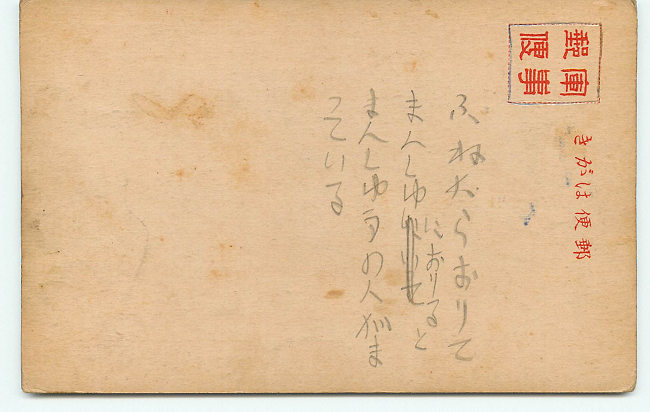 軍事郵便
郵便はがき
ふねからおりて
まんしゆにおりると
まんしゆうの人がま
つている